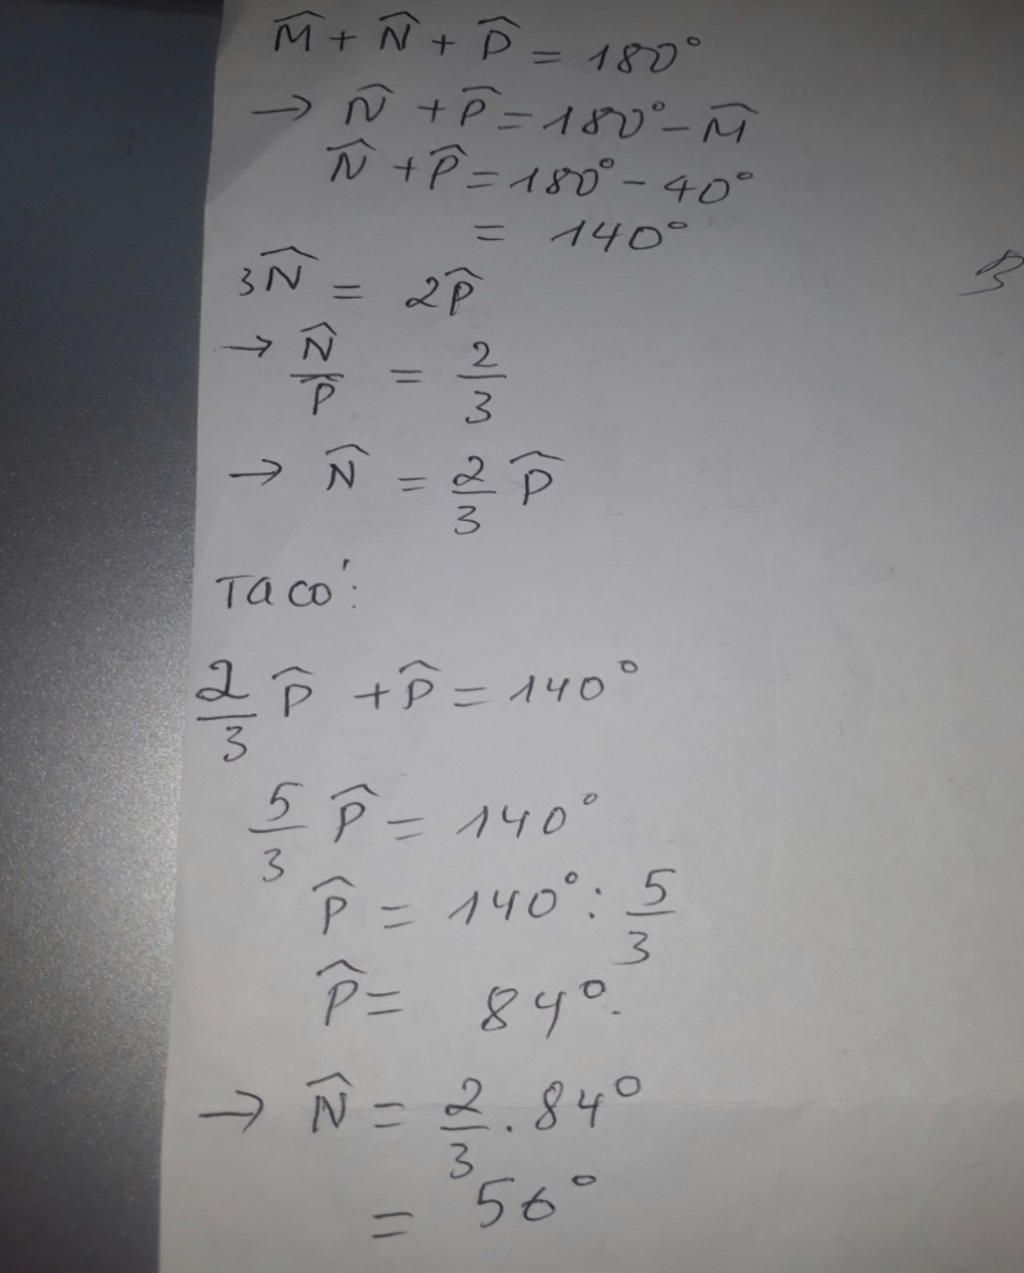 M̂ + N̂ + P̂ = 180°
→ N̂ + P̂ = 180° - M̂
N̂ + P̂ = 180° - 40°
= 140°
3N̂ = 2P̂
→ N̂/P̂ = 2/3
→ N̂ = 2/3 P̂
Ta có:
2/3 P̂ + P̂ = 140°
5/3 P̂ = 140°
P̂ = 140° : 5/3
P̂ = 84°.
→ N̂ = 2/3 . 84°
= 56°